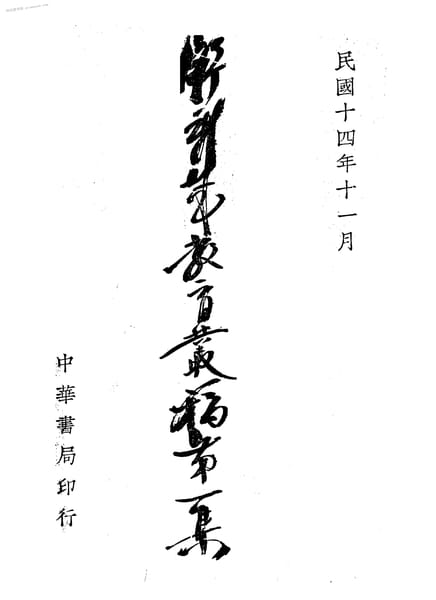 民國十四年十一月
舒新城教育叢稿第一集
中華書局印行